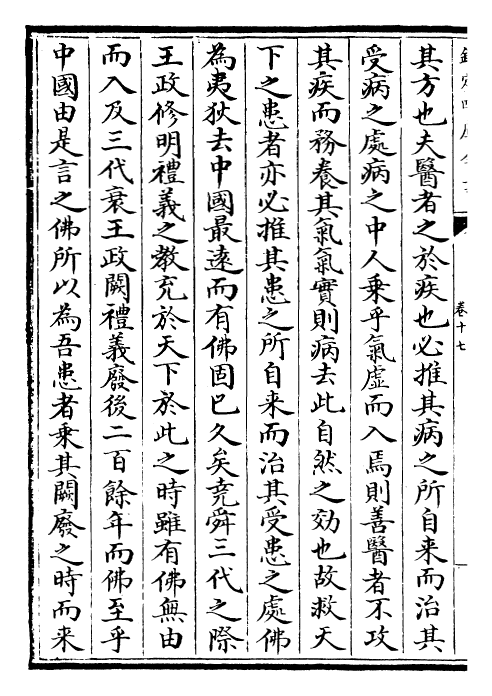 其方也夫醫者之於疾也必推其病之所自来而治其
受病之處病之中人乗乎氣虚而入焉則善醫者不攻
其疾而務養其氣氣實則病去此自然之効也故救天
下之患者亦必推其患之所自来而治其受患之處佛
為夷狄去中國最逺而有佛固已久矣堯舜三代之際
王政修明禮義之教充於天下於此之時雖有佛無由
而入及三代衰王政闕禮義廢後二百餘年而佛至乎
中國由是言之佛所以為吾患者乗其闕廢之時而来
卷十七